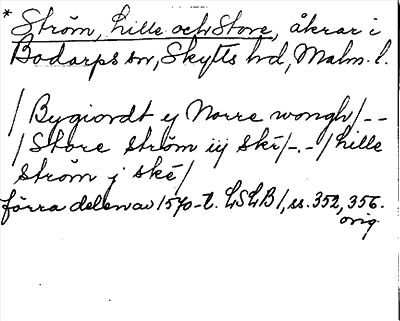 * Ström, Lille och Store, åkrar i
Bodarps sn, Skytts hd, Malm. l.
/ Bygiordt ej Norre wongh/ - -
/ Store ström iij ské/-.-/ Lille
ström j ské/
förra delen av 1570-t. LSLB 1, ss. 352, 356.
orig.